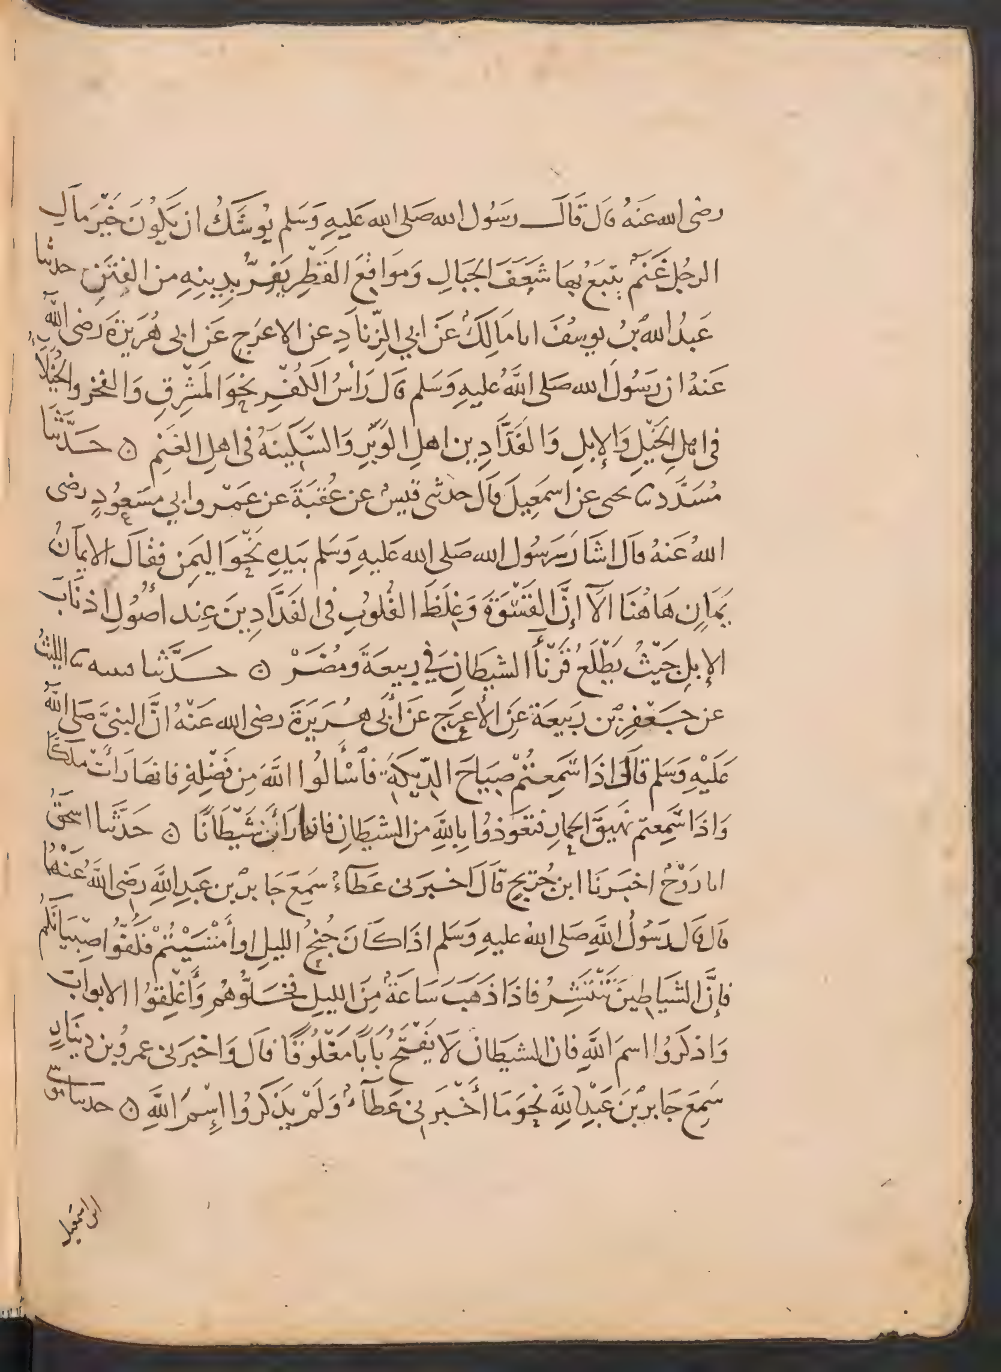 رضى الله عَنهُ قال قَالَ رسُول الله صَلى الله عَليهِ وَسَلم يُوشَكُ ان يَكُونَ خَيْرَ مَالِ
الرجُلِ غَنَمٌ يَتبَعُ بهَا شَعَفَ الجبَالِ وَموَاقعَ القَطْرِ يَفِرُّ بِدِينِهِ من الفِتَنِ حدثنا
عَبدُ الله بنُ يوسُفَ انا مَالِكٌ عَن ابي الزِّنادِ عن الاعرَجِ عَن ابى هُرَيرَةَ رضى اللهُ
عَنهُ ان رَسُولَ الله صَلى اللَّهُ عليهِ وَسَلم قال رَأسُ الكُفْرِ نحْوَ المَشْرِقِ وَالفخر والخُيَلَاءُ
فى اهلِ الخَيْلِ وَالإبلِ وَالفَدَّادِينَ اهلِ الوَبَرِ وَالسَّكينَةُ فى اهلِ الغَنَمِ ⵔ حَدَّثَنَا
مُسَدَّد نا يحيى عن اسمَعِيلَ قال حدثنى قيسٌ عن عُقبَةَ عن عَمْرو ابي مسَعُودٍ رضى
اللهُ عَنهُ قال اشَارَ رَسُول الله صَلى الله عَليهِ وَسَلم بيَدِهِ نحْوَ اليَمَنِ فقالَ الايمَانُ
يَمَانٍ هَاهُنَا ألَآ إنَّ القَسْوَةَ وَغِلَظَ القُلُوبِ فى الفَدَّادِينَ عِند أصُولِ اذنَابِ
الإبلِ حَيْثُ يَطْلُعُ قَرْنَا الشيطَانِ فِي رَبيعَةَ ومُضَرَ ⵔ حَدَّثنا قتيبه نا الليثُ
عن جَعْفَرِ بن رَبيعَةَ عَنِ الأعرَجِ عَن أبى هُرَيَرَةَ رضى الله عَنْهُ انَّ النبىَّ صَلى اللهُ
عَلَيْهِ وَسَلم قالَ اذَا سَمِعتُمْ صِيَاحَ الدِّيكَةِ فَاسْأَلُوا اللَّهَ مِن فَضْلِهِ فانهَا رَأتْ مَلَكًا
وَاذَا سَمِعتم نَهيقَ الحمارِ فتعَوذوُا بِاللَّهِ من الشيطانِ فانهَا رَأتْ شَيْطَانًا ⵔ حَدَّثنا اسحَقُ
انا رَوْحٌ اخبَرَنَا ابن جُرَيجٍ قَالَ اخبَرَنى عَطَاءٌ سَمِعَ جَابرَ بن عَبدِ اللَّهِ رَضى اللَّهُ عَنْهُما
قال قال رَسُولُ اللَّهِ صَلى اللهُ عليهِ وَسَلم اذَا كَانَ جُنحُ الليلِ او أَمْسَيْتُمْ فَكُفُّوا صِبْيَانَكُم
فإنَّ الشيَاطِينَ تَنْتَشِرُ فاذَا ذَهَبَ سَاعَةٌ مِنَ الليلِ فَخَلُّوهُم وَأَغْلِقوُا الابوابَ
وَاذكرُوا اسمَ اللَّهِ فانَّ الشيطَانَ لَا يَفْتَحُ بَابًا مَغْلُوقًا قال وَاخبَرَنى عمرُو بن دِينَارٍ
سَمِعَ جَابرَ بْنَ عَبْدِ اللَّهِ نحْوَ مَا أَخْبَرَنى عَطَآءٌ وَلَمْ يَذكرُوا إِسْمَ اللَّهِ ⵔ حدثنا موسى
ابن اسمعيل